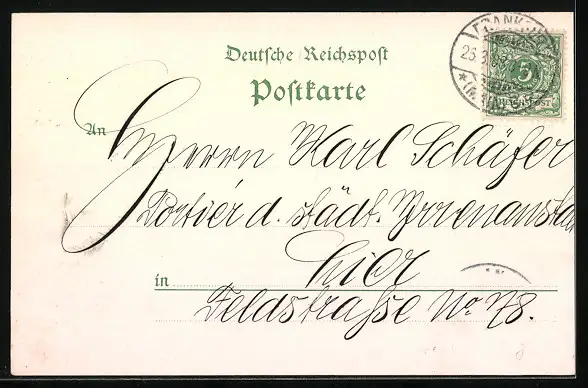 Deutsche Reichspost
Postkarte
An Herrn Karl Schäfer
Portier d. städt. Irrenanstalt
hier
in
Feldstrasse No 78.
5
REICHSPOST